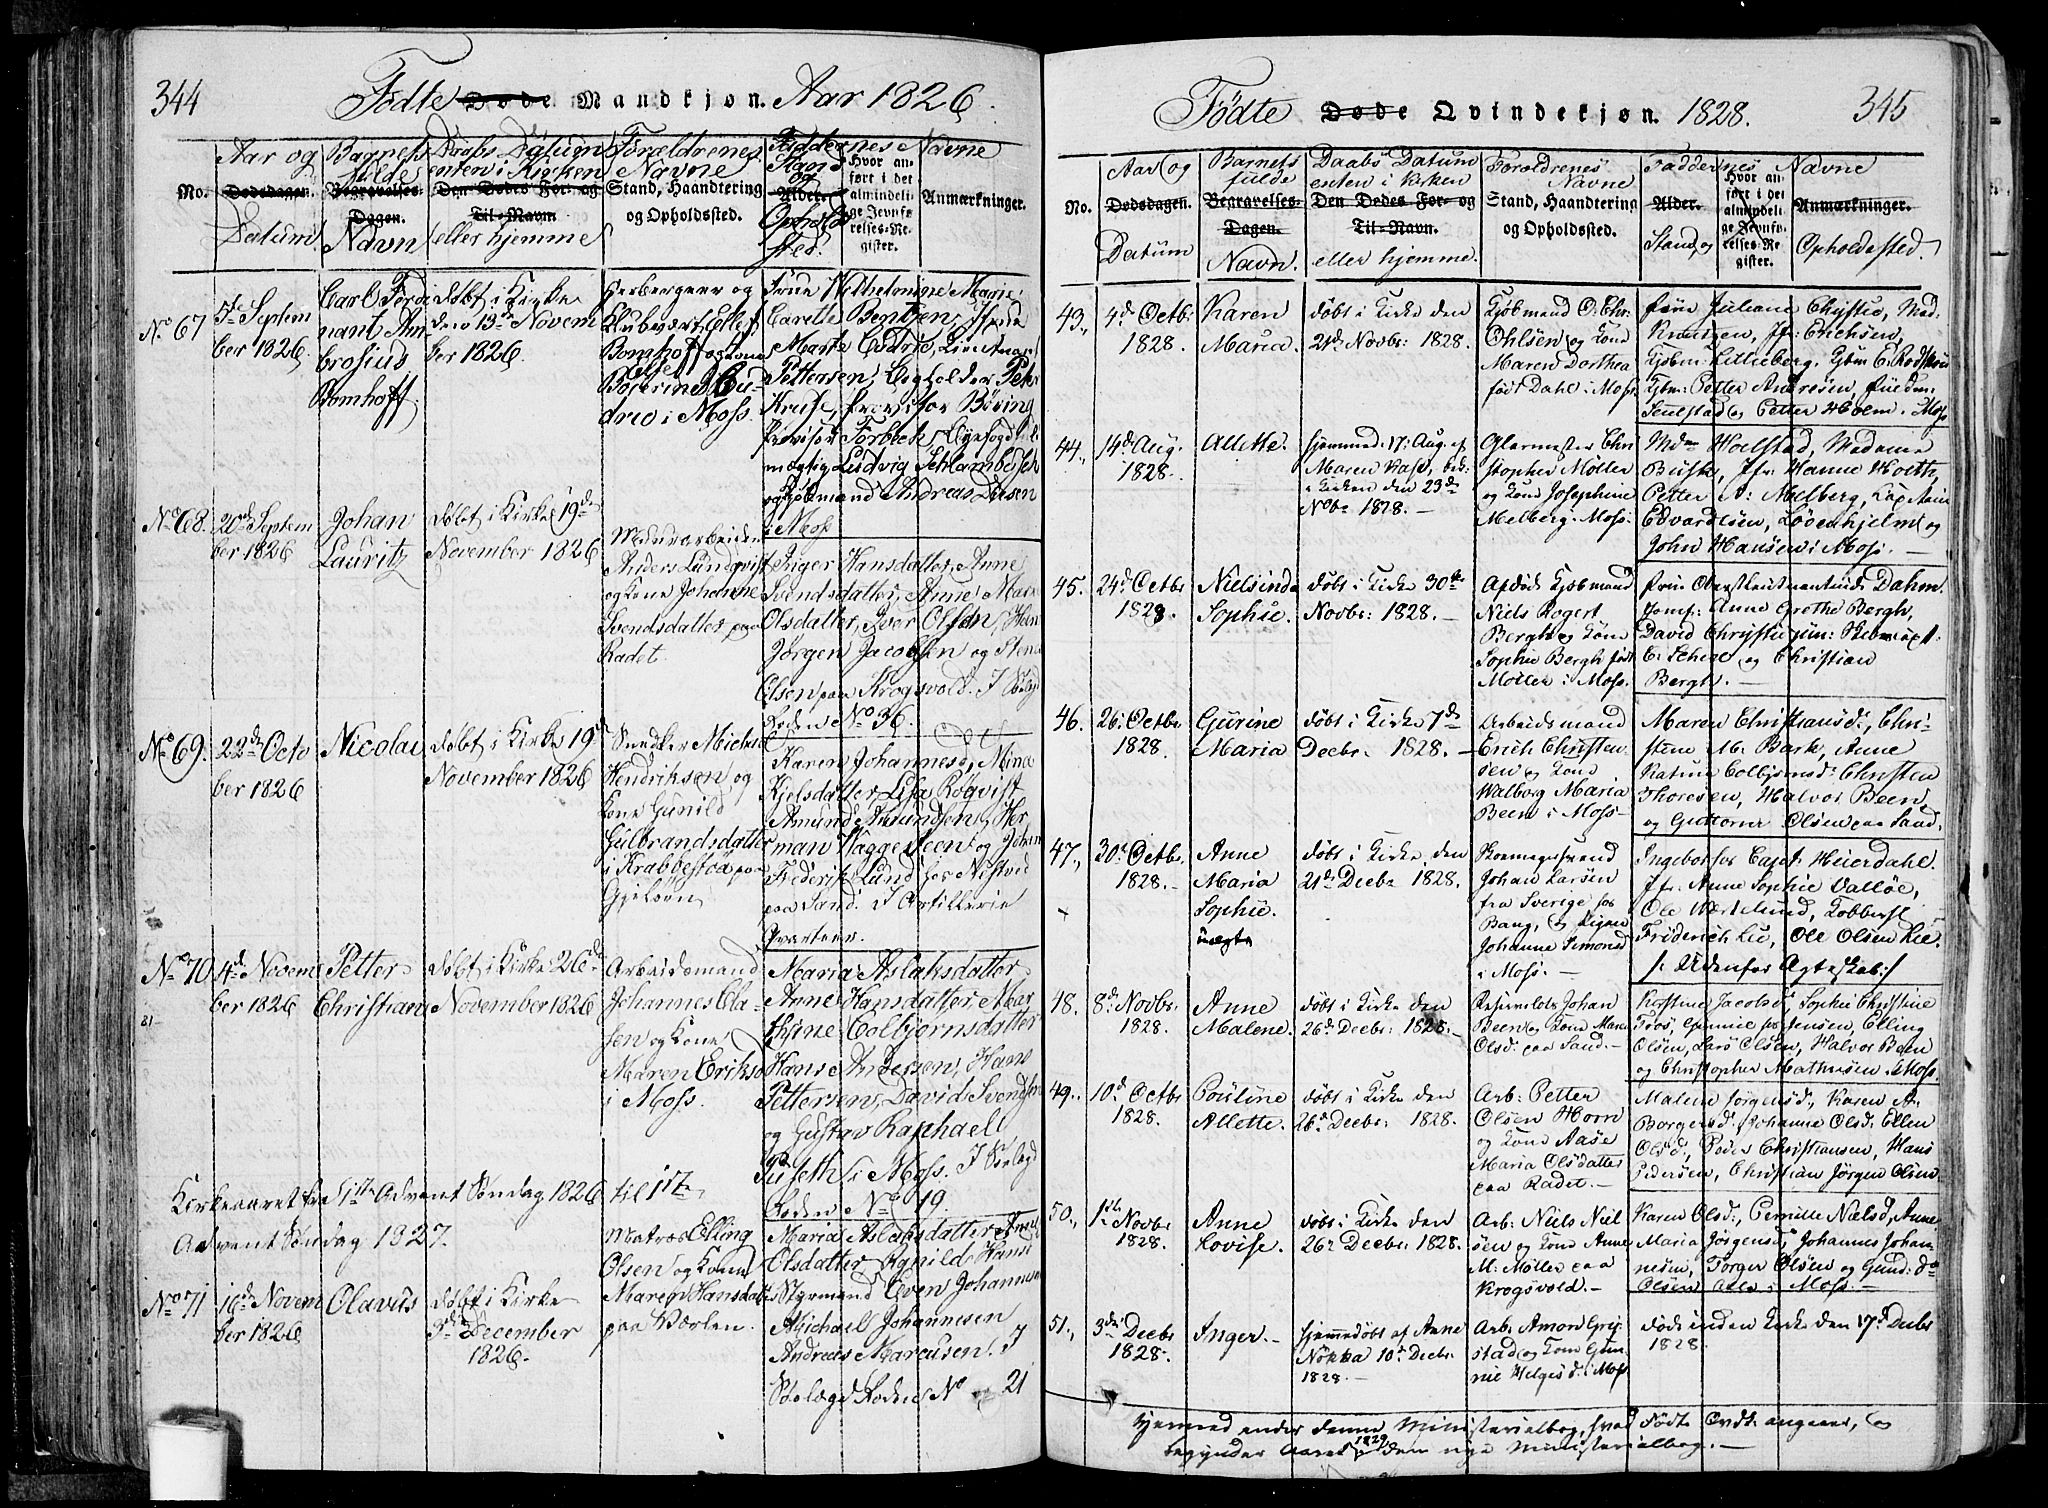 344
Fødte Døde Mandkjøn. Aar 1826.
No.
Aar og
Dødsdagen.
Datum.
Barnets
fulde
Begravelses-
Dagen.
Navn
Daabs Datum
enten i Kirken
Den Dødes For- og
Til-Navn.
eller hjemme
Forældrenes
Navne
Stand, Haandtering
og Opholdssted.
Faddernes Navne
Stand
og
Alder.
Opholds
sted.
Hvor an-
ført i det
almindeli-
ge Jevnfø-
relses-Re-
gister.
Anmærkninger.
No 67
5te Septem
ber 1826
Carl Ferdi
nant Am-
brosius
Bomhoff.
døbt i Kirke
den 19de Novem
ber 1826.
Herbergeer og
Klubvært Ellef
Bomhoff og Kone
i Moss.
Frue Wilhelmine Marie
Carette Bentzen, Jfrue
Pettersen, Peter
Kruse, Provisor Bøving
Provisor Torbeck,
mægtig Ludvig
og Kjøbmand Andreas
i Moss
No 68.
20de Septem
ber 1826
Johan
Lauritz
døbt i Kirke 19de
November 1826
Anders Lundqvist
og Kone Johanne
Svendsdatter paa
Radet.
Inger Hansdatter, Anne
Svendsdatter, Anne Marie
Olsdatter, Iver Olsen,
Jørgen Jacobsen og
Olsen paa Krogsvold. I
Roden No 36.
No 69.
22de Octo
ber 1826
Nicolai
døbt i Kirke 19de
November 1826
Snedker Michael
Hendriksen og
Kone Gunild
Gulbrandsdatter
i Krabbestøa paa
Gjeløen
Karen Johannesd,
Kjelsdatter, Lisa Røqvist
Amund Amundsen, Her
man Waggesteen og Johan
Frederik Lund hos
paa Sand. I Artillerie
Qvarteer.
No 70
4de Novem
ber 1826
Petter
Christian
døbt i Kirke 26de
November 1826
Arbeidsmand
Johannes Cla-
sen og Kone
Maren Eriksd
i Moss.
Maria Aslaksdatter
Anne Hansdatter, Mar
thine Colbjørnsdatter
Hans Andersen, Hans
Pettersen, David Svendsen
og Gustav Raphael
i Moss. I Sørlagd
Roden No 19.
Kirkeaaret fra 1ste Advent Søndag 1826 til 1ste
Advent Søndag 1827.
No 71
16de Novem
ber 1826
Olavus
døbt i Kirke
3de December
1826.
Matros Elling
Olsen og Kone
Maren Hansdat
paa Værlen.
Maria Aslaksdatter
Olsdatter, Ragnild Hans
Styrmand Even Johannesen
Michael Johannesen
Andreas Marcusen. I
Roden No 21
345
Fødte Døde Qvindekjøn. 1828.
No.
Aar og
Dødsdagen.
Datum
Barnets
fulde
Begravelses-
Dagen.
Navn.
Daabs Datum
enten i Kirken
Den Dødes For- og
Til-Navn.
eller hjemme.
Forældrenes
Navne
Stand, Haandtering
og Opholdssted.
Faddernes Navne
Alder.
Stand, og
Hvor an-
ført i det
almindeli-
ge Jevnfø-
relses-Re-
gister.
Anmærkninger.
Opholdssted.
43.
4de Octbr
1828.
Karen
Maria.
døbt i Kirke
21de Novbr: 1828.
Kjøbmand O: Chr:
Ohlsen og Kone
Maren Dorthea
født Dahl i Moss.
Frue Juliane Chrystie, Mad.
Knutzen, Jf: Erichsen,
Kjøbm: Petter Andresen,
og Petter Holm i Moss
44.
14de Aug.
1828.
Allette.
hjemmed: 17: Aug. af
Maren Kase, bek:
i Kirken den 23de
Novbr 1828.
Glarmester Chri
stopher Møller
og Kone Josephine
Melberg i Moss.
Mdme Hoelstad, Madame
Busk, Jfr: Hanne Hoeth,
Petter A: Melberg, Capitain
Edvardsen, Løvenhjelm og
John Hansen i Moss.
45.
24de Octbr
1828.
Nielsinda
Sophie.
døbt i Kirke 30te
Novbr: 1828.
Afdøde Kjøbmand
Niels Rogert
Bergh og Kone
Sophie Bergh født
Møller i Moss.
Frue Oberstleutnantinde Dahm.
Jomf: Anne Grethe Bergh,
David Chrystie jun:
og Christian
Bergh.
46.
26: Octbr
1828.
Gurine
Maria
døbt i Kirke 7de
Decbr: 1828.
Arbeidsmand
Erich Christen
sen og Kone
Walborg Maria
Been i Moss
Maren Christiansd:, Chri-
stine M: Bark, Anne
Katrine Colbjørnsd: Christen
Thoresen, Halvor Been,
og Guttorm Olsen paa Sand.
47.
30te Octbr.
1828.
Anne
Maria
Sophie.
uægte
døbt i Kirke den
21de Decbr 1828.
Kornegusvend
Johan Larsen
fra Sverige hos
Bang, og Pigen
Johanne Simonsd
i Moss.
Ingebor hos Capt: Heierdahl.
Jf: Anne Sophie Valløe,
Friderich Lie, Ole Olsen Lie.
/: Udenfor Ægteskab:/
48.
8de Novbr:
1828.
Anne
Malene.
døbt i Kirke den
26de Decbr: 1828.
Johan
Been og Kone Maren
Olsd: paa Sand.
Kirstine Jacobsd, Sophie Christine
Olsen, Lars Olsen, Halvor Been
og Christopher Mathiesen i Moss.
49.
10de Octbr
1828.
Pouline
Allette.
døbt i Kirke den
26de Decbr: 1828.
Arb: Petter
Olsen Horn
og Kone Aase
Maria Olsdatter
paa Radet.
Malene Jørgensd, Karen A:
Borgersd: Johanne Olsd: Ellen
Olsd, Peder Christiansen, Hans
Pedersen, Christian Jørgen Olsen
50.
1ste Novbr
1828.
Anne
Lovise.
døbt i Kirke den
26de Decbr: 1828.
Arb: Niels Niel
sen og Kone Anne
M: Møller paa
Krogsvold.
Karen Olsd:, Pernille Nielsd, Anne
Maria Jørgensd, Johannes Johan-
nesen, Torger Olsen og Gund:
Olsen Alle i Moss.
51.
3de Decbr
1828.
Inger.
hjemmedøbt af Anne
Nøkka 10de Decbr.
1828.
Arb: Amon Gry
stad og Kone Gun
nie Helgesd: i Moss
døde inden Kirke den 17de Decbr
1828.
Hjermed ender denne Ministerialbog, hvad Fødte Qvdk: angaaer, og
begynder Aaret 1829 den nye Ministerialbog.